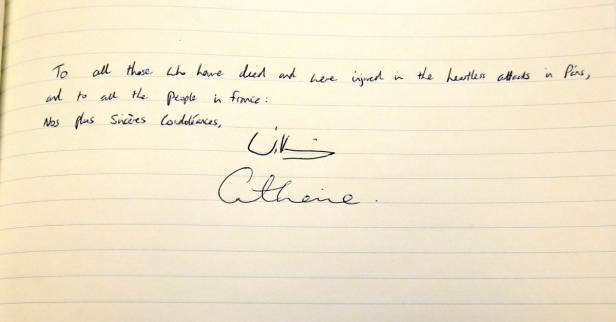 To all those who have died and were injured in the heartless attacks in Paris,
and to all the people in France:
Nos plus Sincères Condoléances,
Catherine.